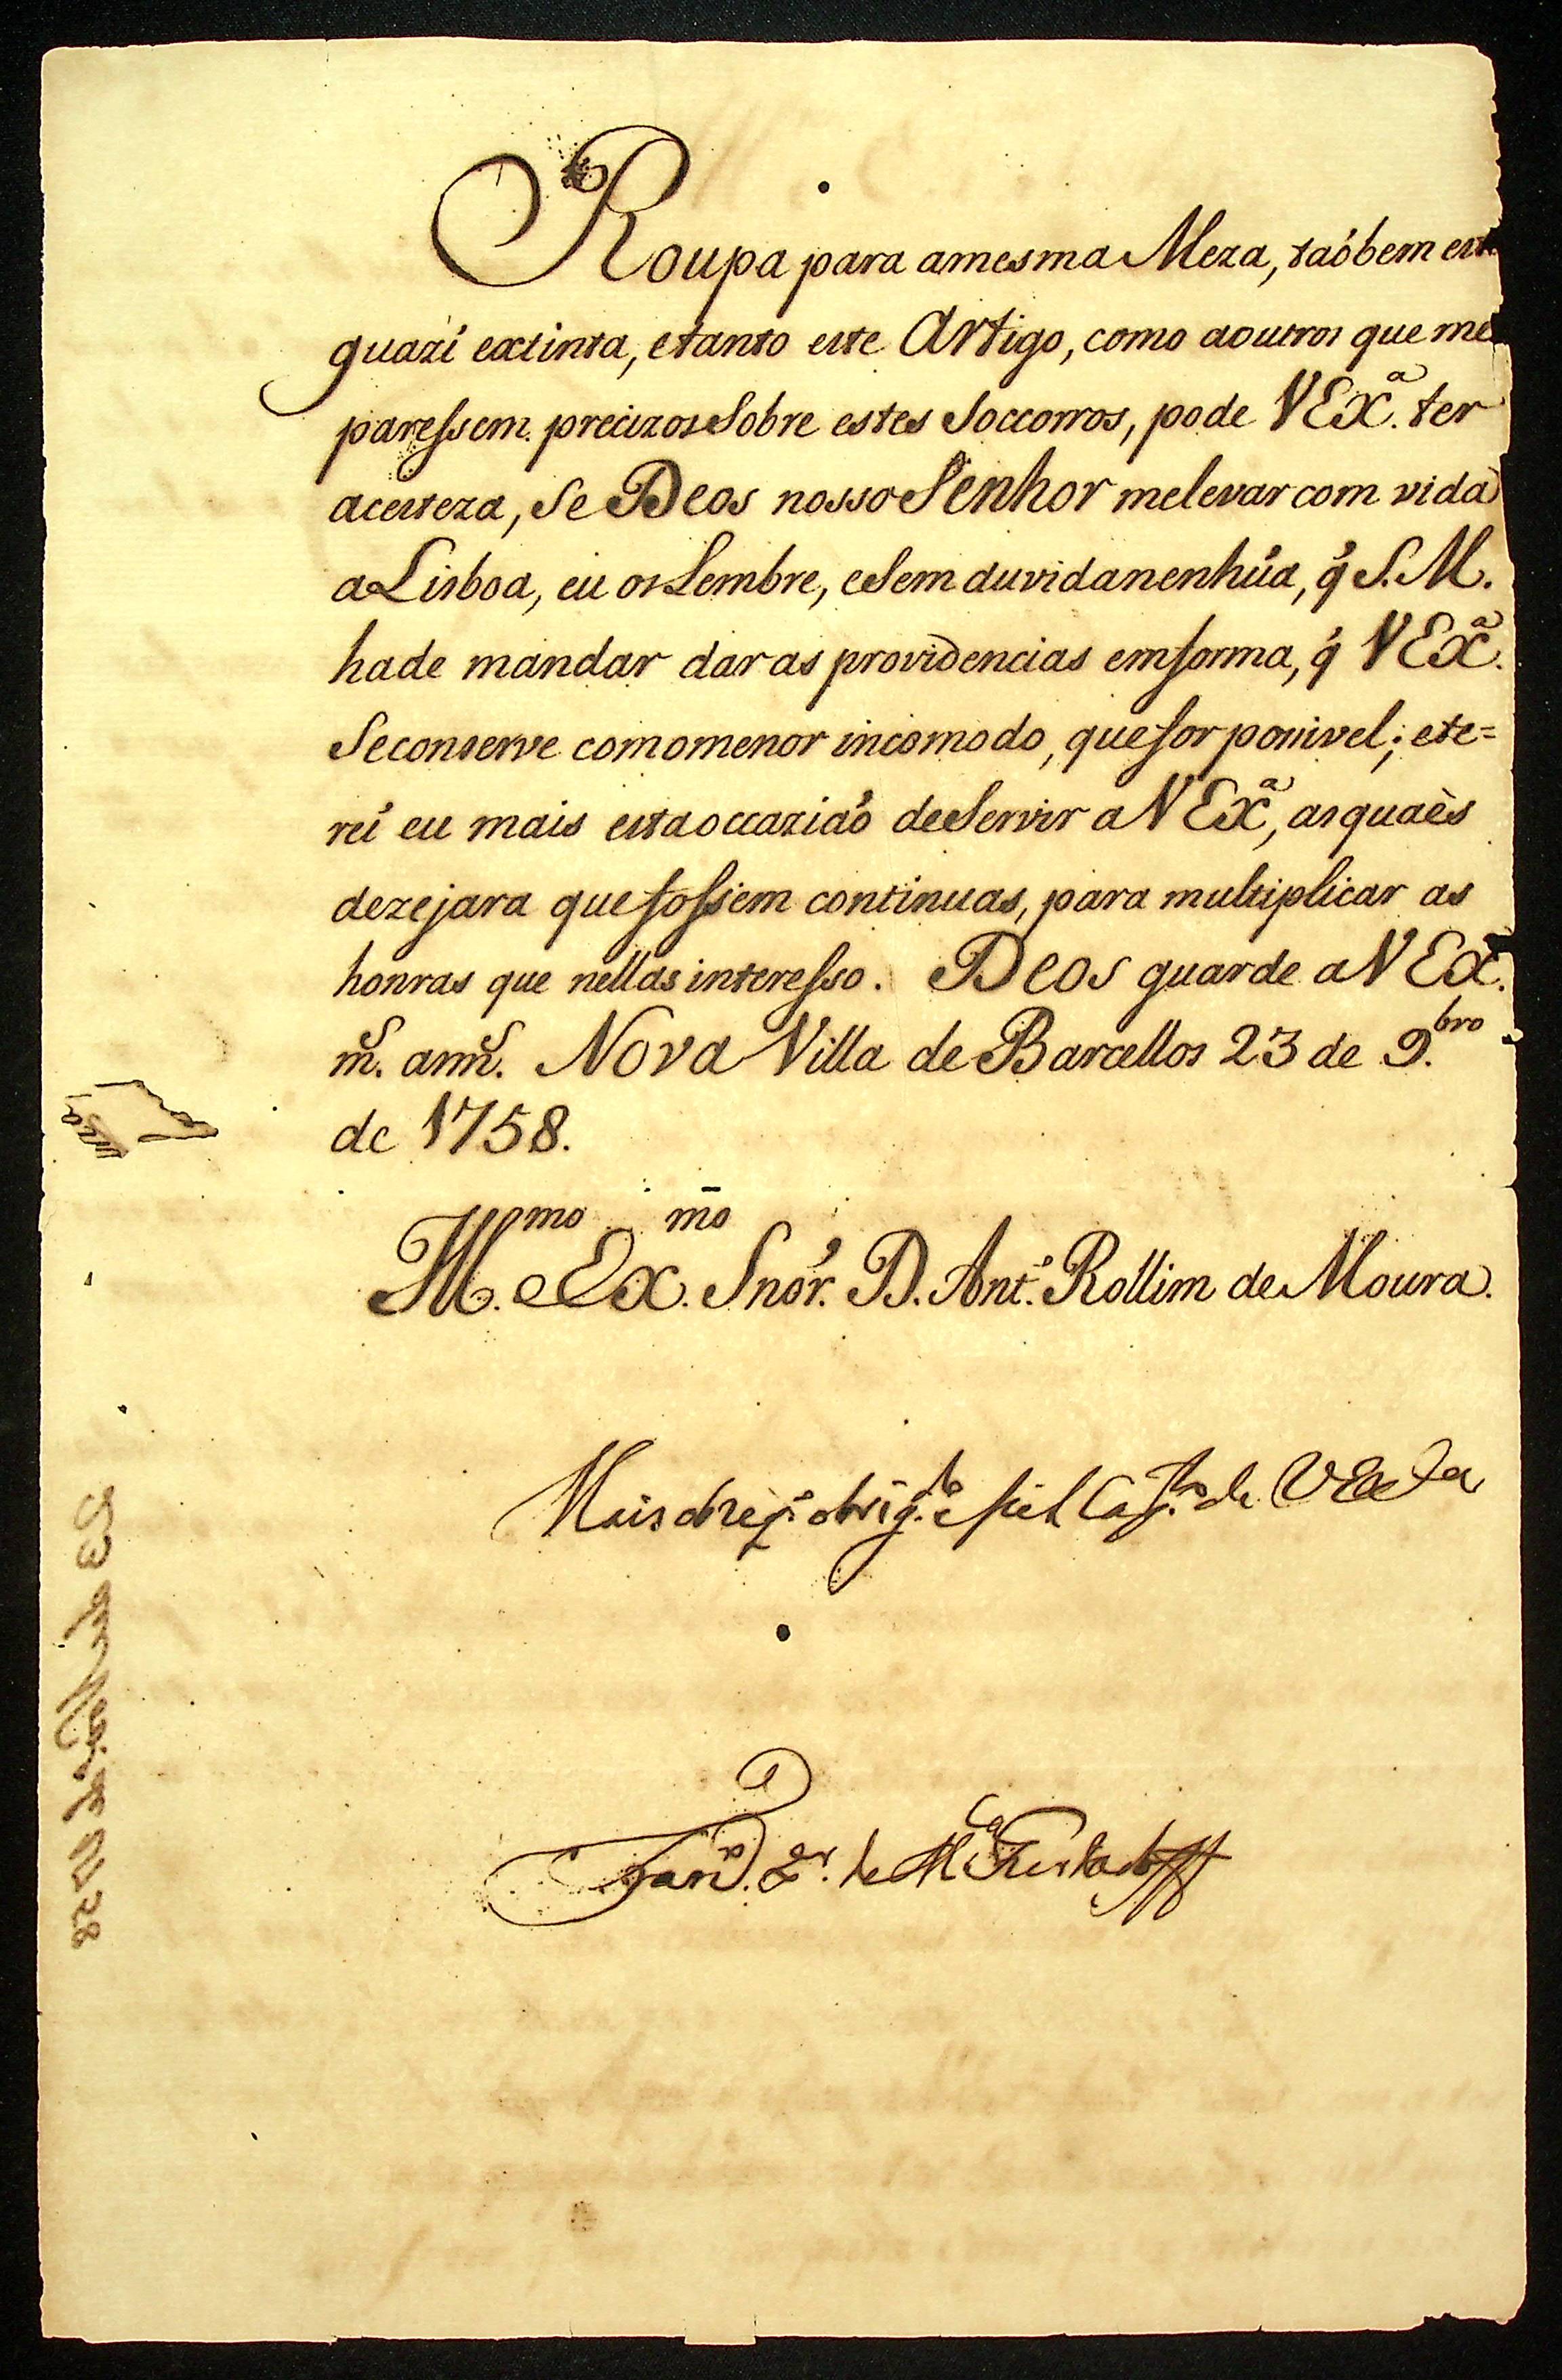 Roupa para amesma Meza, taóbem está
quazi extinta, etanto este Artigo, como aoutros que me
paressem precizos Sobre estes Soccorros, pode VEx.ª ter
acerteza, Se Deos nosso Senhor melevar com vida
a Lisboa, eu os Lembre, eSem duvida nenhúa, q̃ S.M.
hade mandar dar as providencias emforma, q̃ VEx.ª
Seconserve comomenor incómodo, quefor possivel; ete=
rei eu mais estaoccaziaõ deServir aVEx.ª, asquaès
dezejara que fossem continuas, para multiplicar as
honras que nellas interesso. Deos guarde aVEx.ª
m.s ann.s Nova Villa de Barcellos 23 de 9.bro
de 1758.
Ill.mo e Ex.mo Snõr. D. Ant.º Rollim de Moura.
Mais obrig.do e fiel Cap.to de VExa
Fran.co X.er de M.ça Furtado